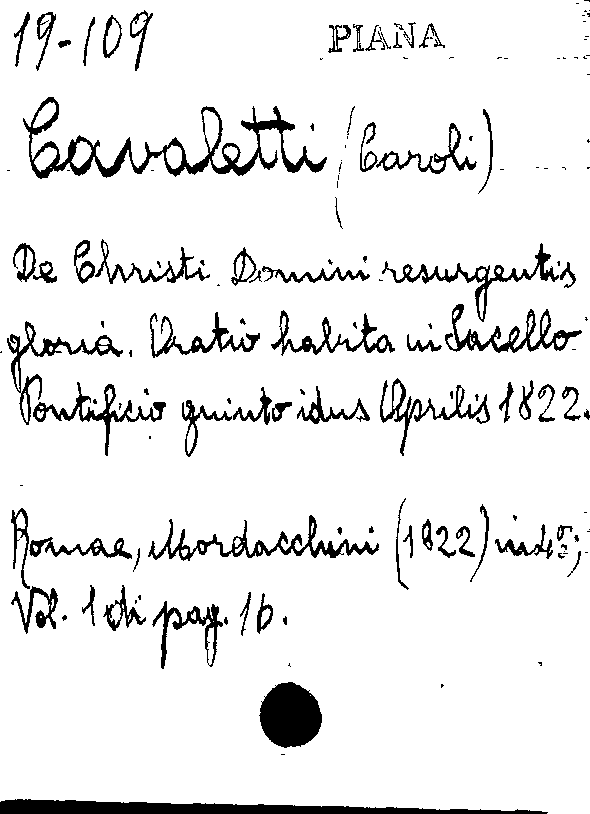 19-109 PIANA
Cavaletti (Caroli)
De Christi Domini resurgentis
gloria. Oratio habita in Sacello
Pontificio quinto idus Aprilis 1822.
Romae, Mordacchini (1822) in 4º;
Vol. 1 di pag. 16.